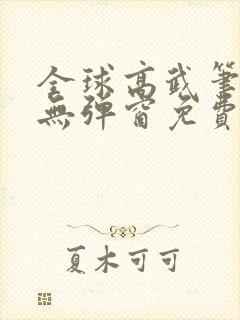 全球高武筆
無彈窗免費
夏木可可